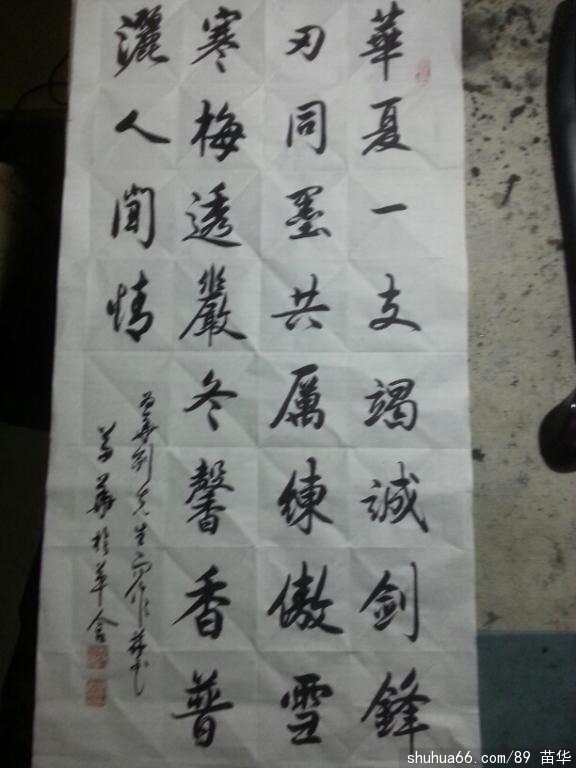 華夏一支竭誠劍鋒
刃同墨共厲練傲雪
寒梅透嚴冬馨香普
灑人間情
苗華劍先生正作並书
苗華於草舍
shuhua66.com/89 苗华